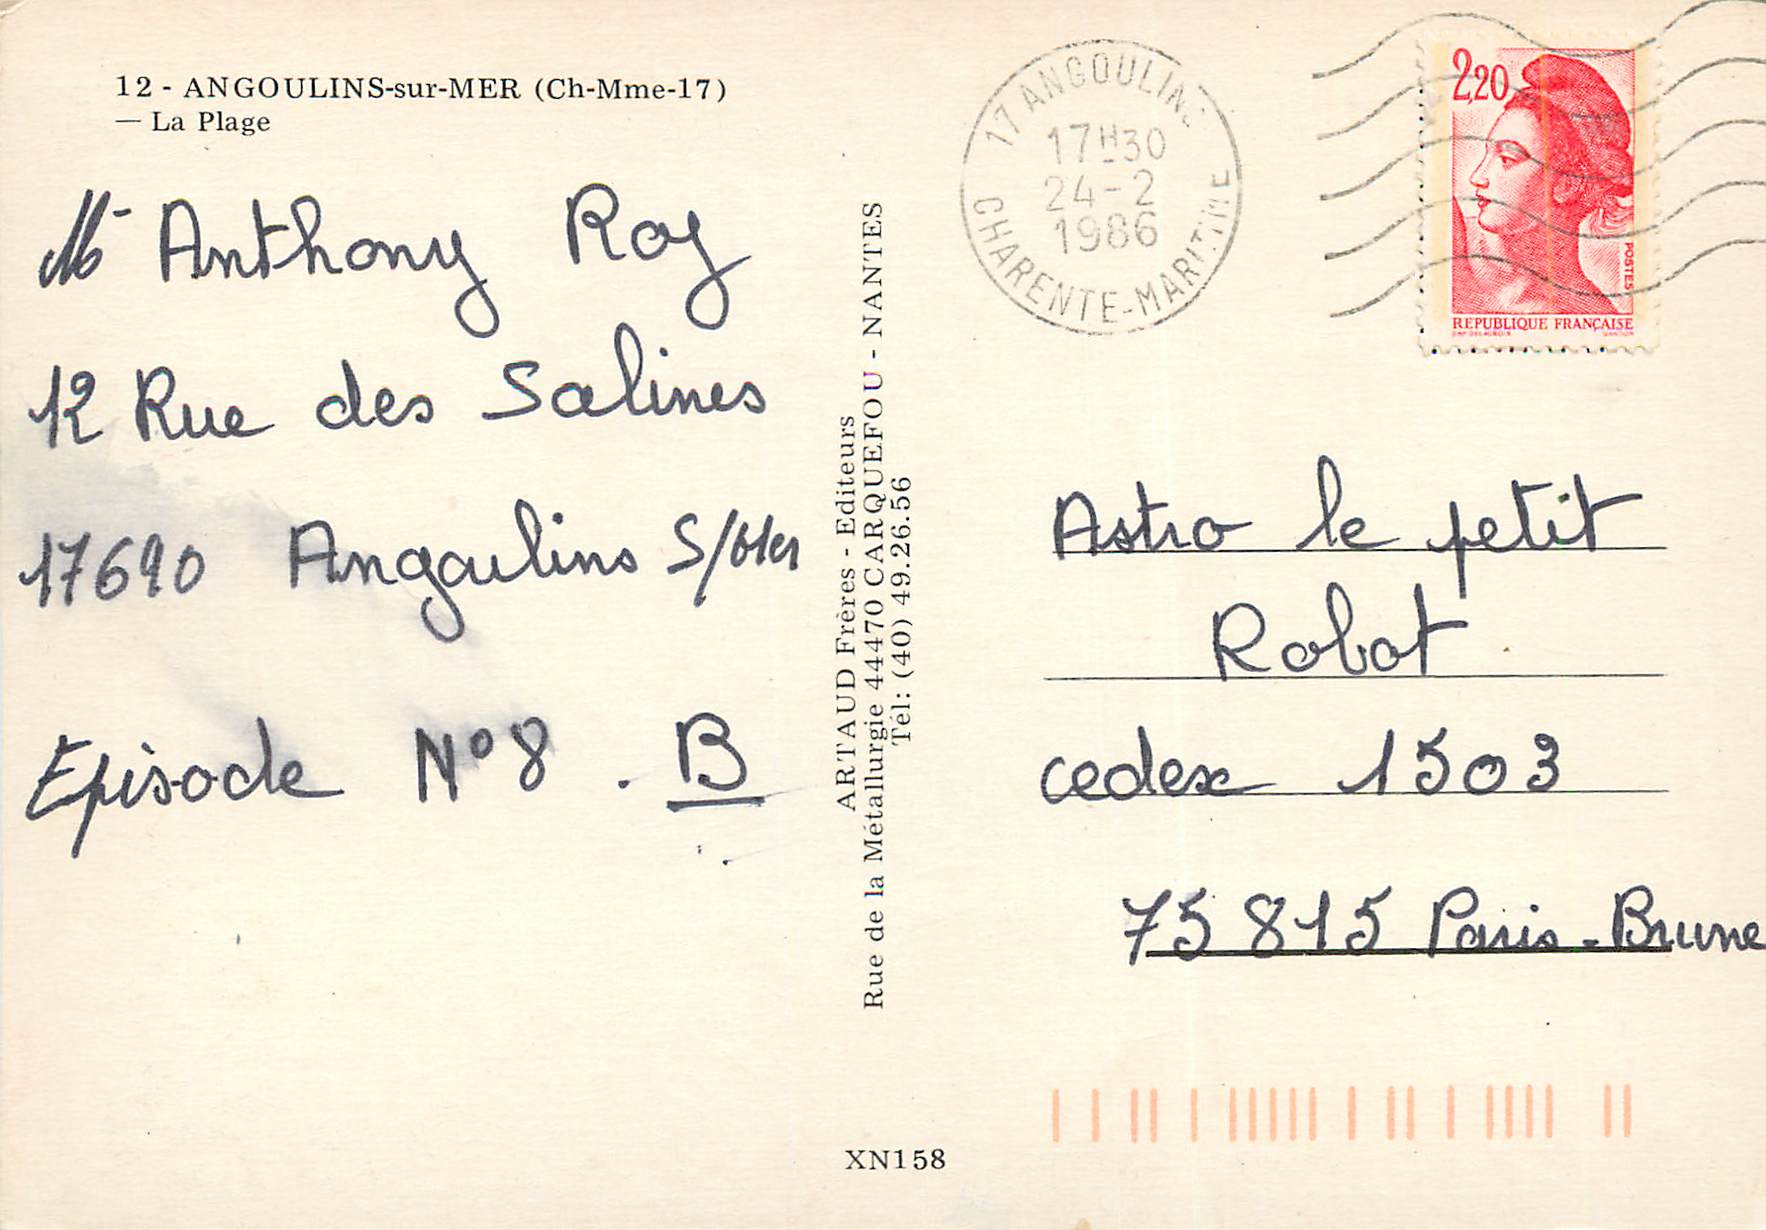 12 - ANGOULINS-sur-MER (Ch-Mme-17)
— La Plage
Mr Anthony Roy
12 Rue des Salines
17690 Angoulins S/Mer
Episode N°8 . B
ARTAUD Frères - Editeurs
Rue de la Métallurgie 44470 CARQUEFOU - NANTES
Tél: (40) 49.26.56
XN158
17 ANGOULINS
17H30
24-2
1986
CHARENTE-MARITIME
2,20
POSTES
REPUBLIQUE FRANÇAISE
Astro le petit
Robot
cedex 1503
75 815 Paris-Brune